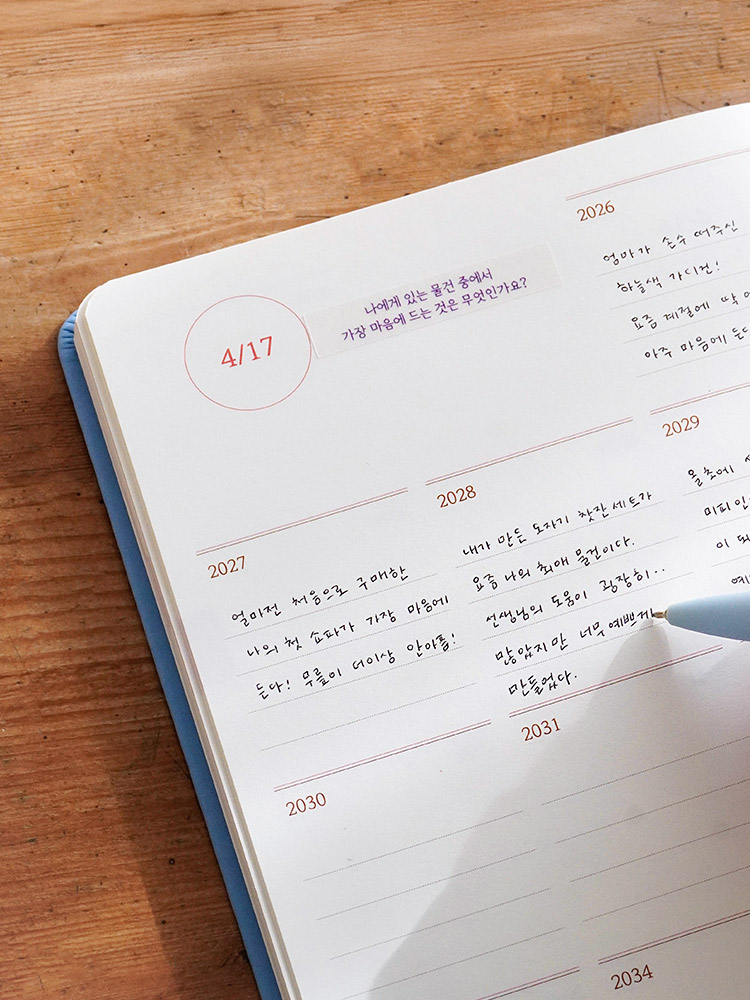 4/17
나에게 있는 물건 중에서
가장 마음에 드는 것은 무엇인가요?
2026
엄마가 손수 떠주신
하늘색 가디건!
요즘 계절에 딱
아주 마음에 든다
2027
얼마전 처음으로 구매한
나의 첫 쇼파가 가장 마음에
든다! 무릎이 더이상 안아픔!
2028
내가 만든 도자기 찻잔세트가
요즘 나의 최애 물건이다.
선생님의 도움이 굉장히..
많았지만 너무 예쁘게
만들었다.
2029
올초에
미피인
이
예
2030
2031
2034